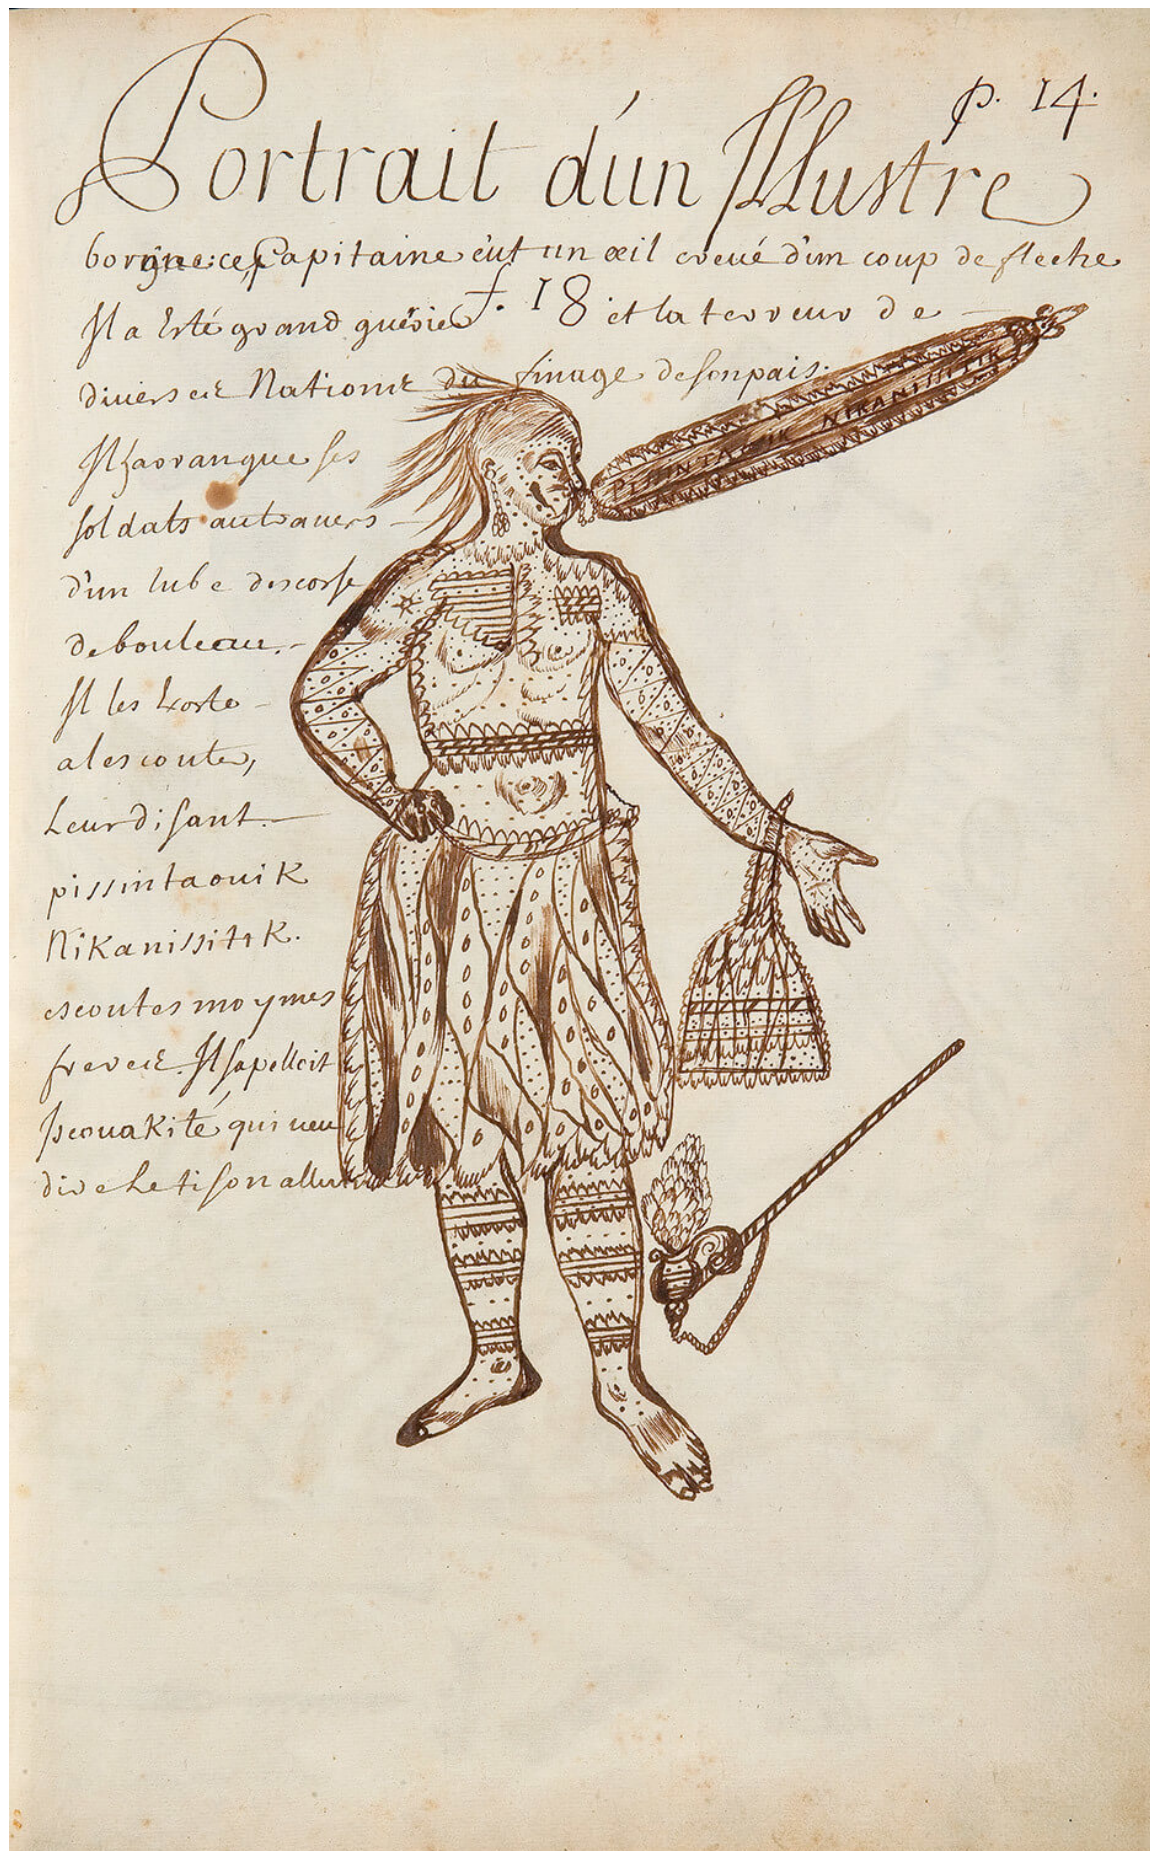 p. 14.
Portrait d'un Illustre
borgne: ce, Capitaine eut un œil creué d'un coup de fleche
Il a Esté grand guérier et la terreur de
f. 18
diverses Nations du finage de son pais.
PISSINTAOUIK NIKANISSITIK
Il harangue ses
soldats autrauers
d'un tube descorse
de bouleau.
Il les Exorte
alescouter,
Leur disant.
pissintaouik
Nikanissitik.
escoutes moy mes
freres. Il sapelloit
Iscouakité qui ueu
dire Le tison allumé